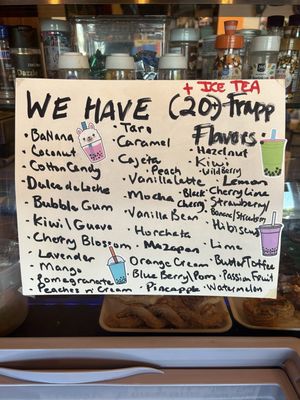 + ICE TEA
WE HAVE (20+) Frapp
Flavors:
• Banana
• Coconut
• Cotton Candy
• Dulce de leche
• Bubble Gum
• Kiwi/Guava
• Cherry Blossom
• Lavender
• Mango
• Pomegranate
• Peaches n' Cream
• Taro
• Caramel
• Cajeta
• Peach
• Vanilla Latte
• Mocha
• Black Cherry
• Vanilla Bean
• Horchata
• Mazapan
• Orange Cream
• Blue Berry/Pom
• Pineapple
• Hazelnut
• Kiwi
• Wild Berry
• Lemon
• Cherry Lime
• Strawberry
• Banana/Strawberry
• Hibiscus
• Lime
• Butter Toffee
• Passion Fruit
• Watermelon